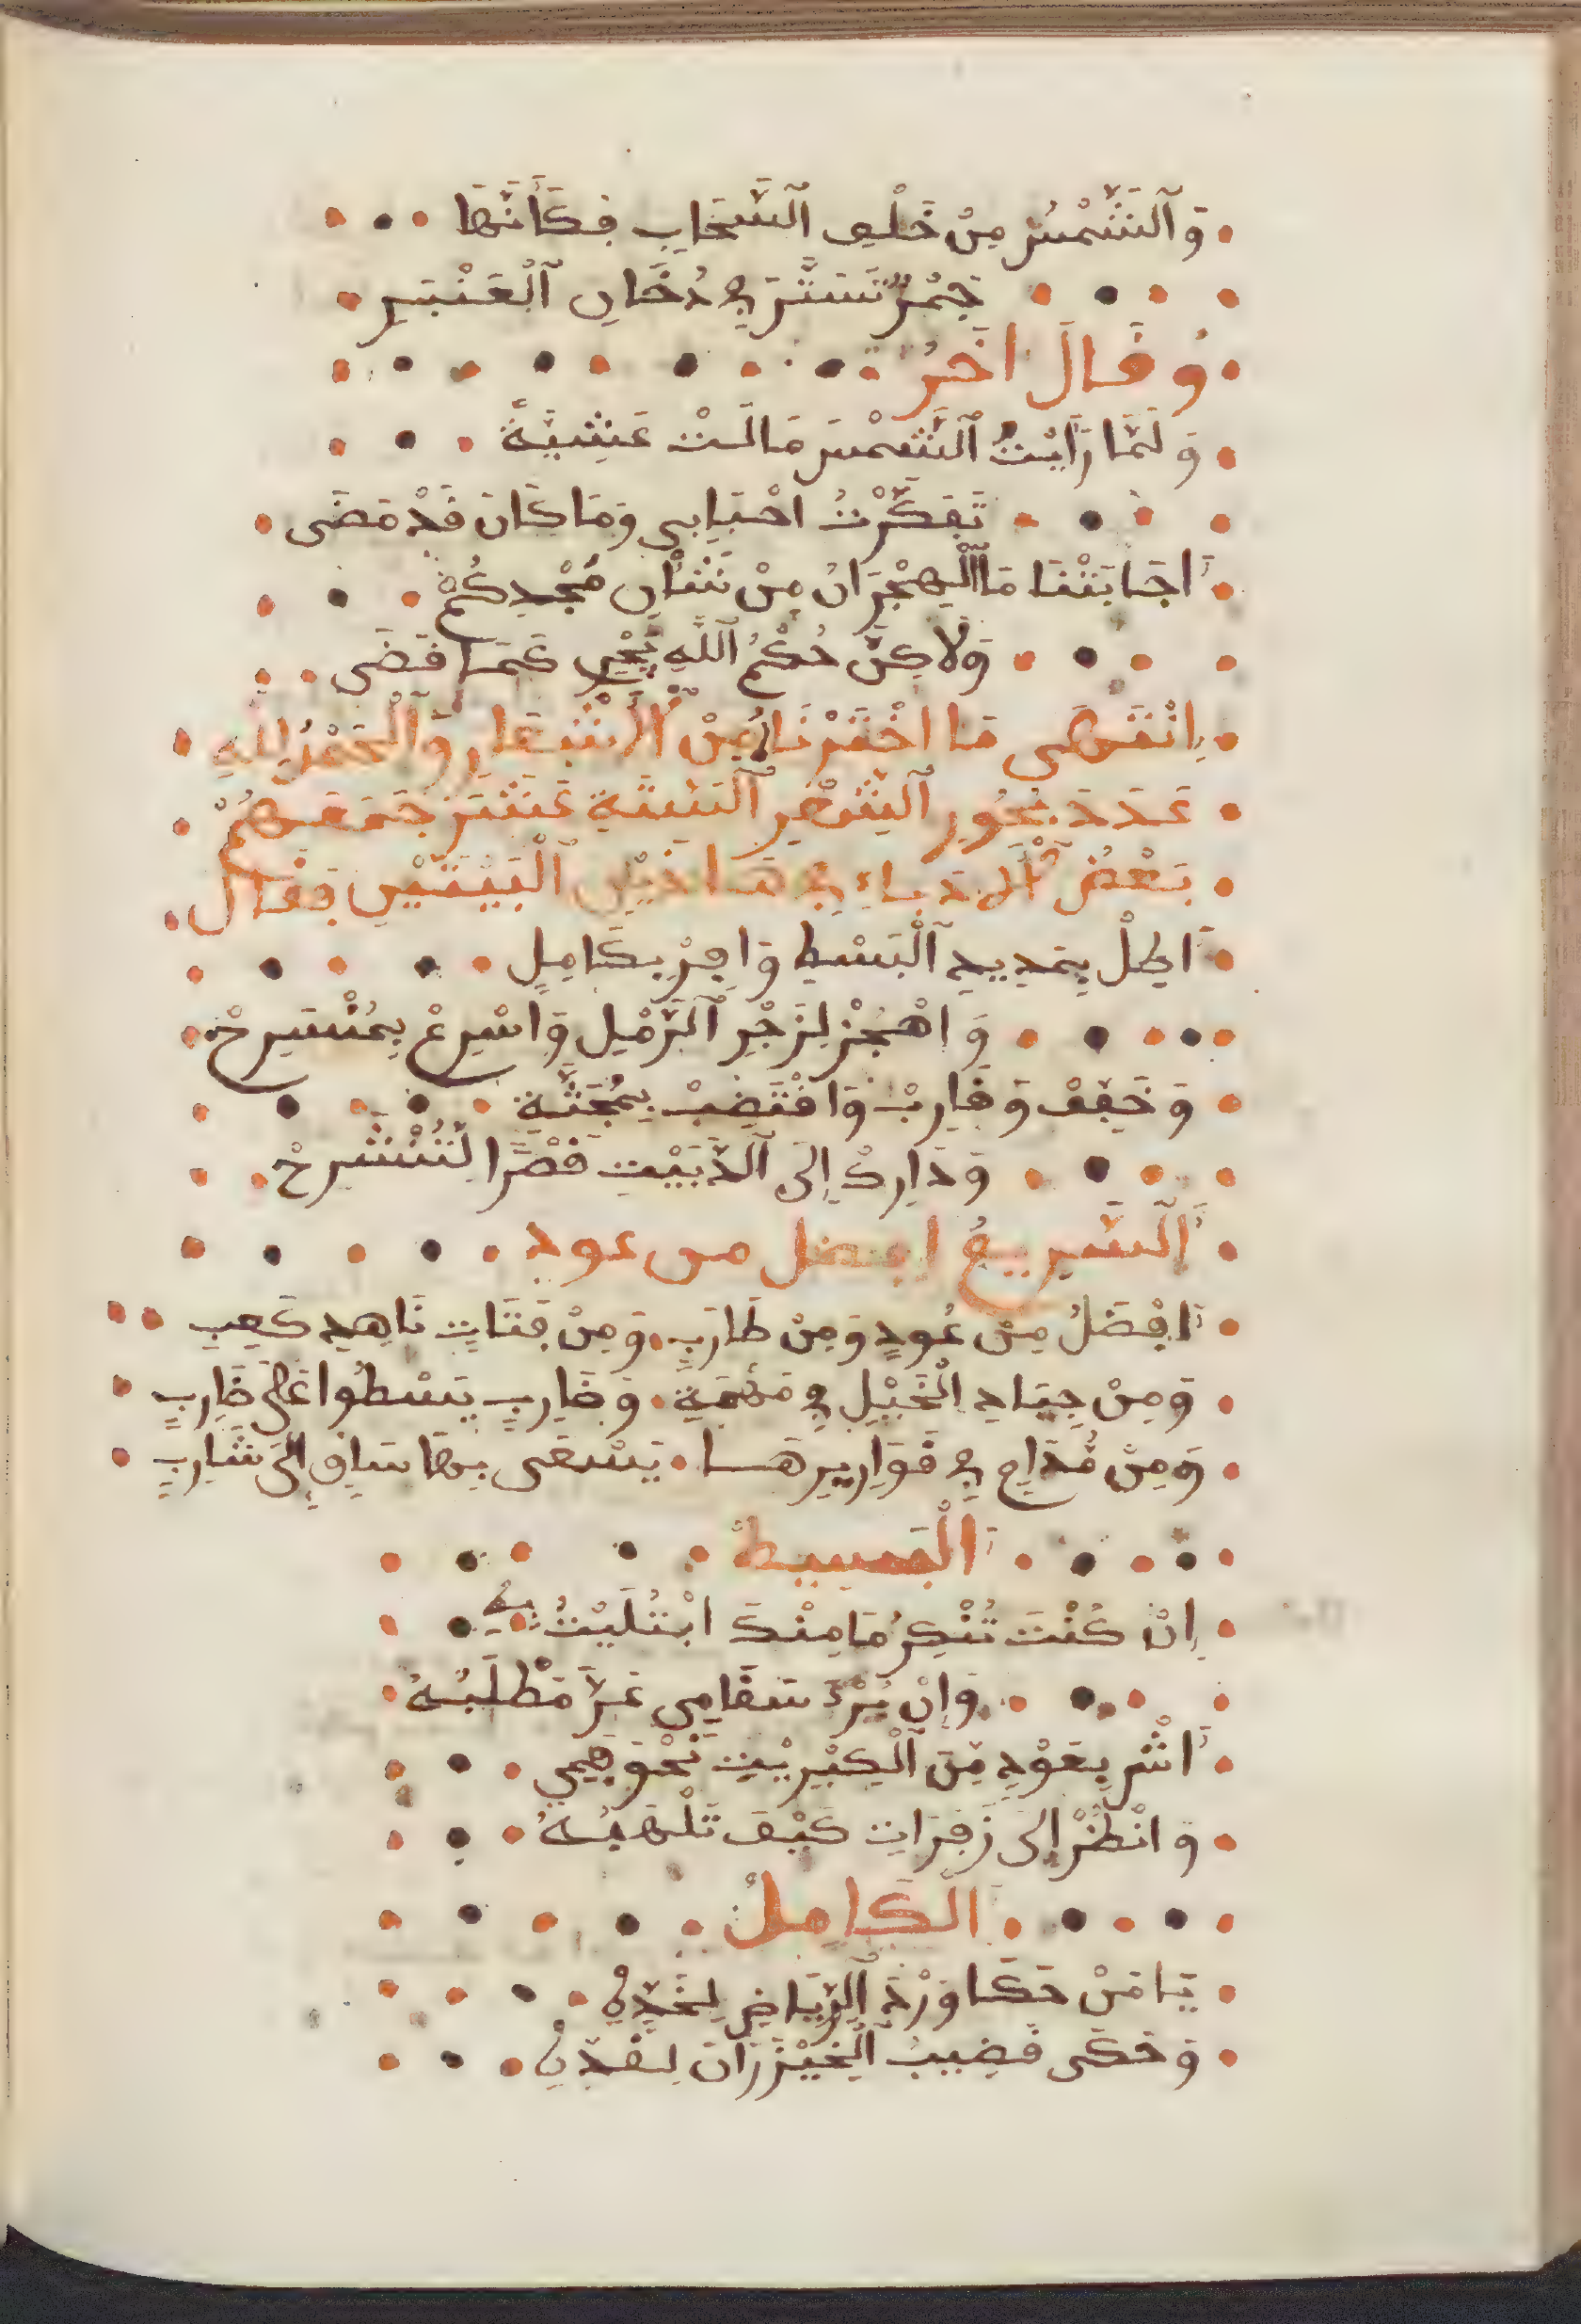 وَٱلشَّمْسُ مِنْ خَلْفِ ٱلسَّحَابِ فَكَأَنَّهَا
جَمْرٌ تَسَتَّرَ فِي دُخَانِ ٱلْعَنْبَرِ
وَقَالَ اخَرُ
وَلَمَّا رَأَيْتُ ٱلشَّمْسَ مَالَتْ عَشِيَّةً
تَفَكَّرْتُ احْبَابِي وَمَا كَانَ قَدْ مَضَى
أَجَابَتْنَا مَا ٱلْهِجْرَانُ مِنْ شَأْنِ مَجْدِكُمْ
وَلَاكِنَّ حُكْمُ ٱللَّهِ يَجْرِي كَمَا قَضَى
إِنْتَهَى مَا اخْتَرْنَا مِنْ ٱلْأَشْعَارِ وَٱلْحَمْدُ لِلَّهِ
عَدَدَ بُحُورِ ٱلشِّعْرِ ٱلسِّتَّةَ عَشَرَ جَمَعَهُمْ
بَعْضُ ٱلْأُدَبَاءِ فِي هَاذَيْنِ ٱلْبَيْتَيْنِ فَقَالَ
أَطِلْ بِمَدِيدِ ٱلْبَسْطِ وَافِرْ بِكَامِلٍ
وَاهْجُزْ لِزَجْرِ ٱلرَّمْلِ وَاسْرِعْ بِمُنْسَرِحْ
وَخَفِّفْ وَقَارِبْ وَاقْتَضِبْ بِمُجْتَثَّةٍ
وَدَارِكْ إِلَى ٱلذَّبَيْتِ قَصْرًا لِتُنْشَرِحْ
أَلسَّرِيعُ افضل من عود
أَفْضَلُ مِنْ عُودٍ وَمِنْ طَارَبٍ وَمِنْ فَتَاتٍ نَاهِدٍ كَعِبِ
وَمِنْ جِيَادِ الْخَيْلِ فِي مَهْمَةٍ وَضَارِبٍ يَسْطُوا عَلَى ضَارِبٍ
وَمِنْ مُدَامٍ فِي قَوَارِيرِهَا يَسْعَى بِهَا سَاقٍ إِلَى شَارِبٍ
أَلْبَسِيطُ
إِنْ كُنْتَ تُنْكِرُ مَا مِنْكَ ابْتُلَيْتُ بِهِ
وَإِنْ بُرْءَ سَقَامِي عَزَّ مَطْلَبُهُ
أَشْرِ بِعَوْدٍ مِنَ ٱلْكِبْرِيْتِ نَحْوَ فَمِي
وَانْظُرْ إِلَى زَفَرَاتِ كَيْفَ تَلْهَبُهُ
أَلْكَامِلُ
يَا مَنْ حَكَا وَرْدَ ٱلرِّيَاضِ لِخَدِّهِ
وَحَكَى قَضِيبُ ٱلْخَيْزَرَانَ لِقَدِّهِ